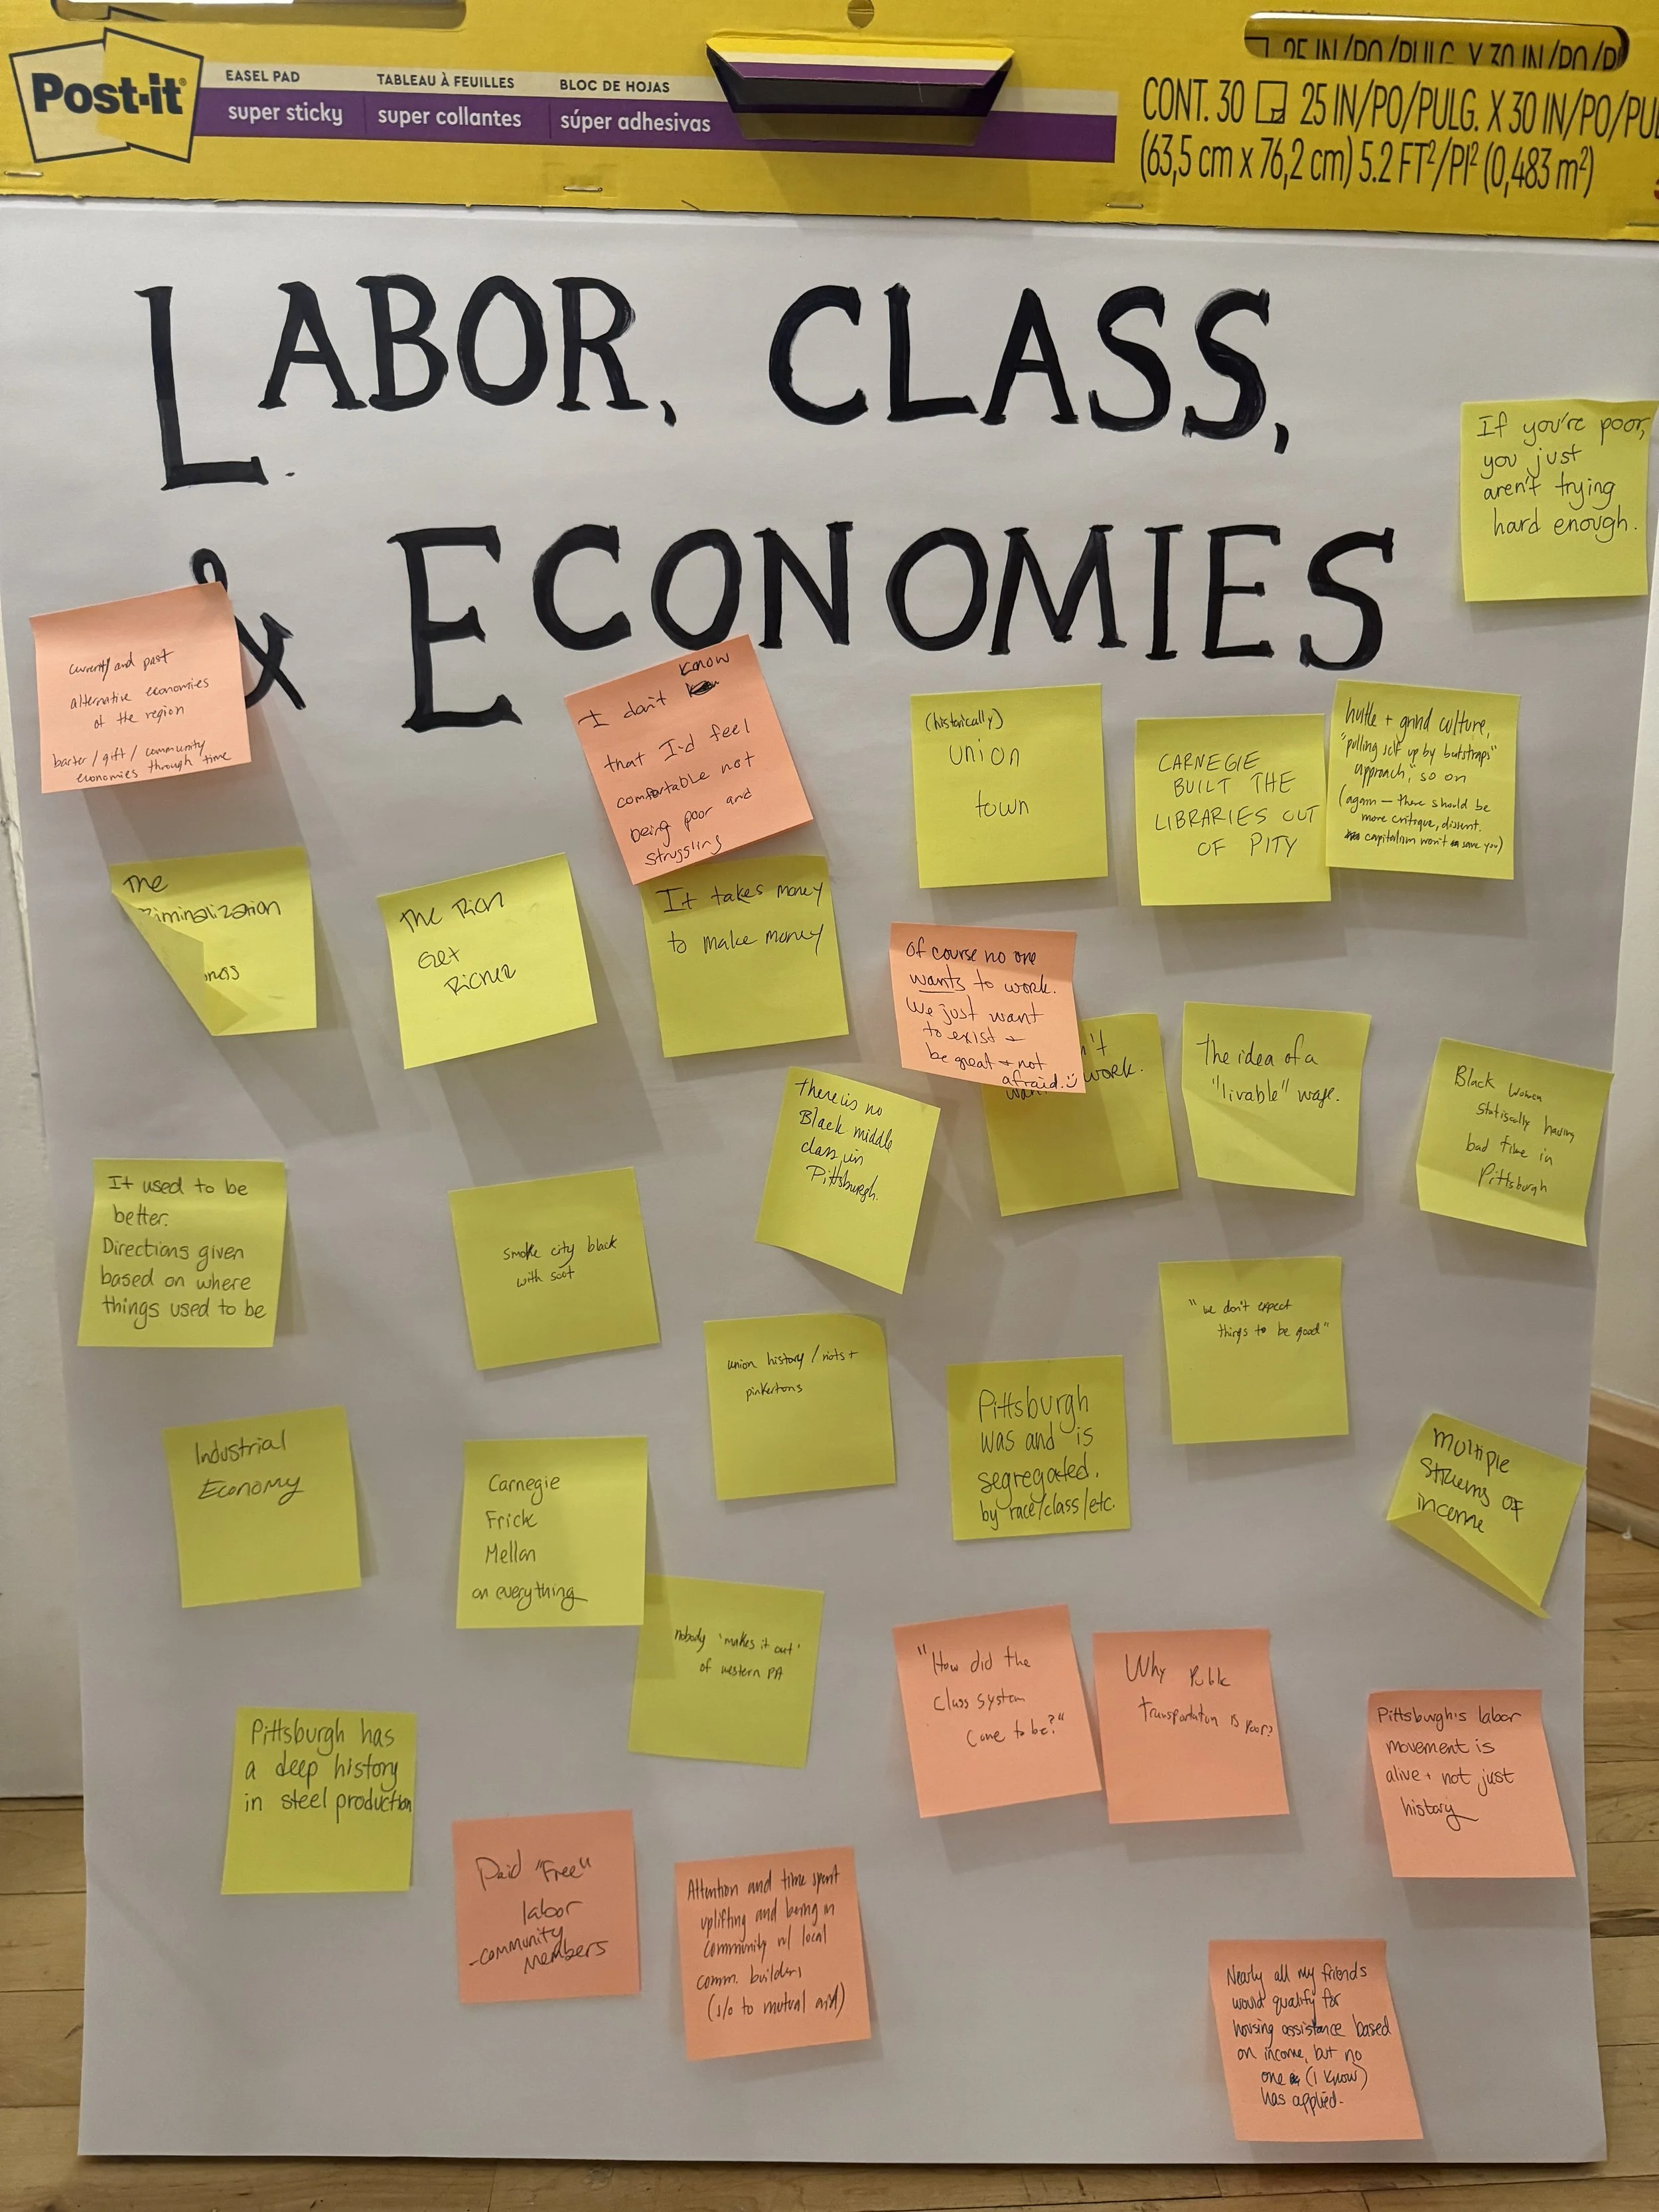 Post-it
EASEL PAD
super sticky
TABLEAU À FEUILLES
super collantes
BLOC DE HOJAS
súper adhesivas
25 IN/PO/PULG. X 30 IN/PO/PU
CONT. 30 25 IN/PO/PULG. X 30 IN/PO/PUL
(63,5 cm x 76,2 cm) 5.2 FT²/PI² (0,483 m²)
LABOR, CLASS,
& ECONOMIES
If you're poor,
you just
aren't trying
hard enough.
current/ and past
alternative economies
of the region
barter/gift/community
economies through time
I don't know
that I'd feel
comfortable not
being poor and
struggling
(historically)
union
town
CARNEGIE
BUILT THE
LIBRARIES OUT
OF PITY
hustle + grind culture,
"pulling self up by bootstraps"
approach, so on
(again — there should be
more critique, dissent.
capitalism won't save you)
The
iminalization
ness
The Rich
Get
Richer
It takes money
to make money
Of course no one
wants to work.
We just want
to exist +
be great + not
afraid. :)
n't
wan work.
The idea of a
"livable" wage.
Black Women
statiscally having
bad time in
Pittsburgh
There is no
Black middle
class in
Pittsburgh.
It used to be
better.
Directions given
based on where
things used to be
smoke city black
with soot
"we don't expect
things to be good"
union history / riots +
pinkertons
Pittsburgh
was and is
segregated.
by race/class/etc.
Industrial
Economy
Carnegie
Frick
Mellon
on everything
Multiple
Streams of
income
nobody 'makes it out'
of western PA
"How did the
class system
come to be?"
Why Public
Transportation is Poor?
Pittsburgh's labor
movement is
alive + not just
history
Pittsburgh has
a deep history
in steel production
Paid "Free"
labor
-community
members
Attention and time spent
uplifting and being in
community w/ local
comm. builders
(s/o to mutual aid)
Nearly all my friends
would qualify for
housing assistance based
on income, but no
one (I know)
has applied.